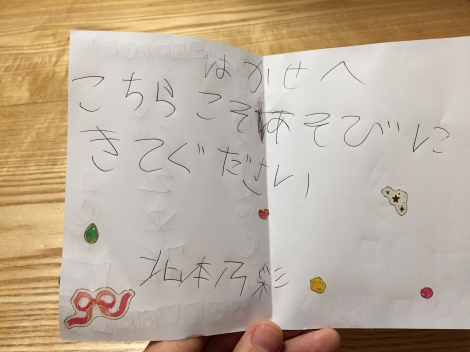 はかせへ
こちらこそあそびに
きてください
北本乃彩